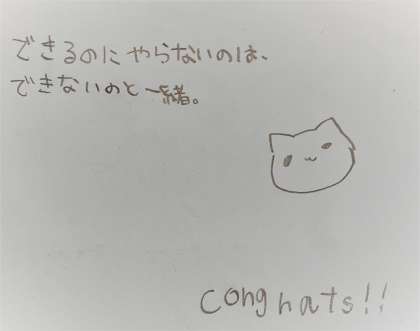 できるのにやらないのは、
できないのと一緒。
Conghats!!